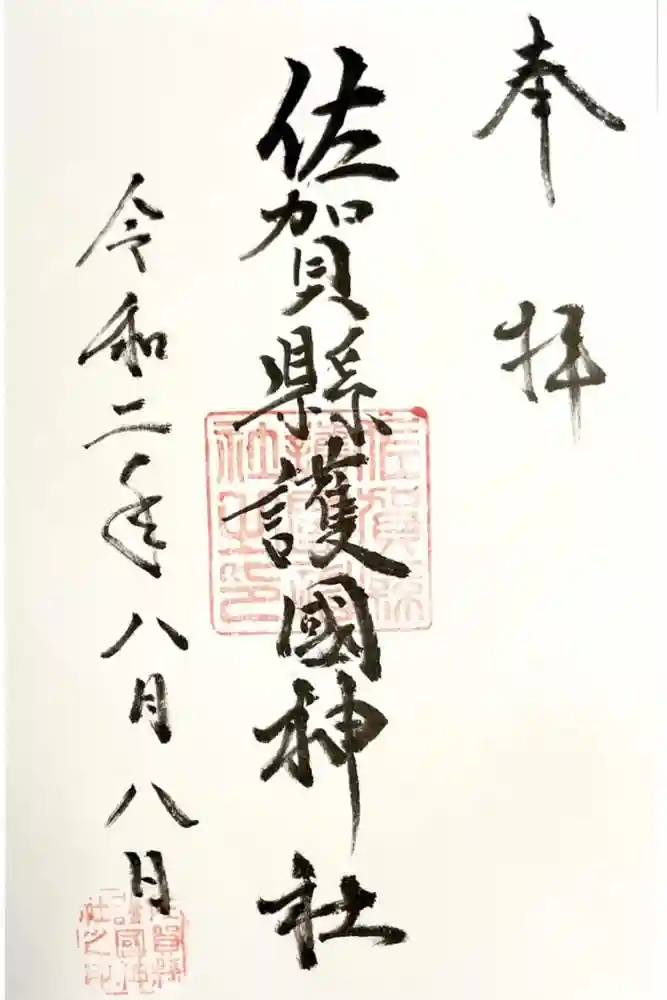 奉拝
佐賀縣護國神社
佐賀縣護國神社之印
令和二年八月八日
佐賀縣護國神社之印